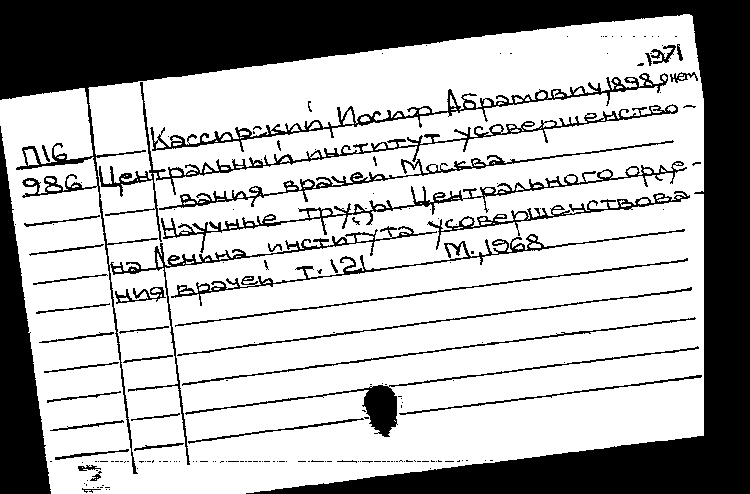 -1971
Кассирский, Иосиф Абрамович, 1898, о нем
П16
986 Центральный институт усовершенство-
вания врачей. Москва.
Научные труды Центрального орде-
на Ленина института усовершенствова-
ния врачей т. 121 М., 1968
2